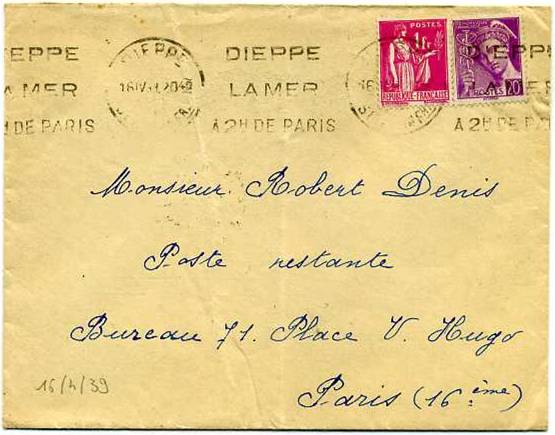 EPPE
DIEPPE
DIEPPE
D'EPPE
A MER
16 IV
20
LA MER
16
ER
H DE PARIS
A 2H DE PARIS
A 2H DE PA
POSTES
1F
REPUBLIQUE FRANÇAISE
POSTES
20
Monsieur Robert Denis
Poste restante
Bureau 71. Place V. Hugo
Paris (16ème)
16/4/39